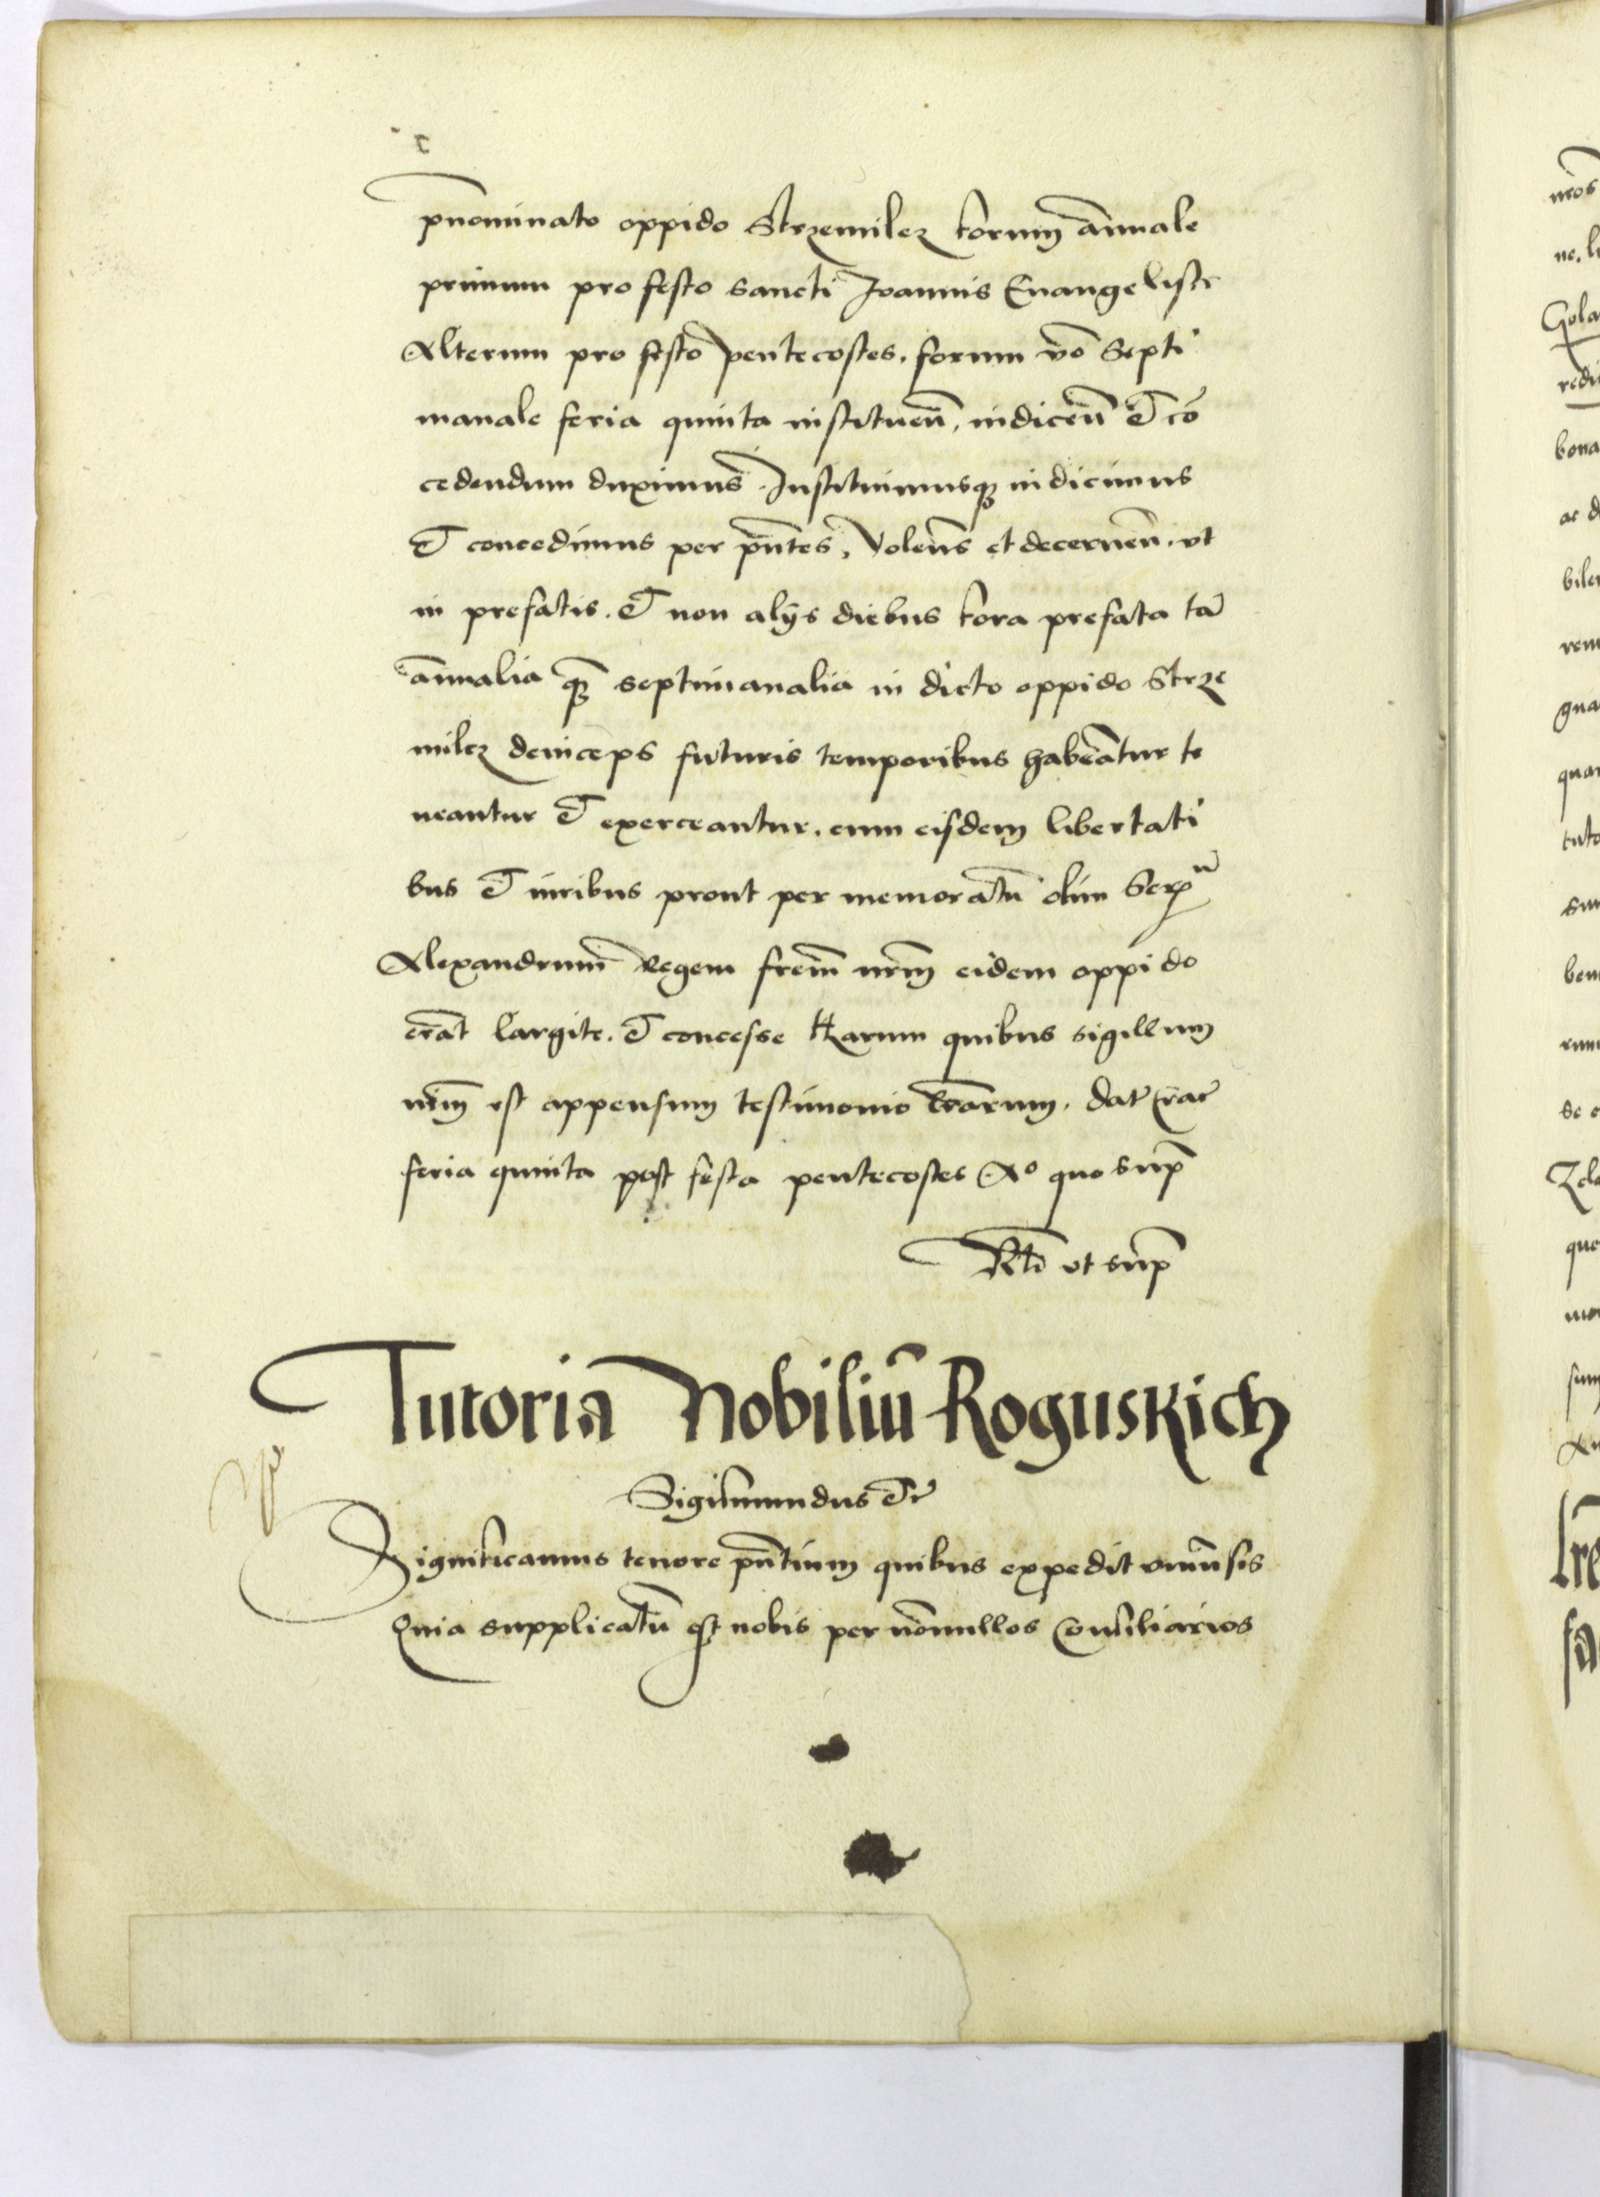 pñominato oppido Strzemilez forum ãnnuale
primum pro festo sancti Joannis Euangeliste
Alterum pro festo pentecostes. forum vo Septi
manale feria quinta instituen̄. indicen̄ Et cõ
cedendum duximus. Instituimusq3 indicimus
Et concedimus per pñtes, Volens et decernen̄. vt
in prefatis. Et non alÿs diebus fora prefata tã
ãnnualia q3 septimanalia in dicto oppido Strze
milez deinceps futuris temporibus habeãntur te
neantur Et exerceantur. cum eisdem libertati
bus Et iuribus prout per memoratũ olim Serᵐ
Alexandrum Regem frem̃ nrm̃ eidem oppido
erãt largite. Et concesse Harum quibus sigillum
nrm̃ est appensum testimonio lrãrum. dat̃ Crac̃
feria quinta post festa pentecostes Aº quo sup̃
Rtõ vt sup̃
Tutoria Nobiliũ Roguskich
Sigismundus Etc̃
Significamus tenore pñtium quibus expedit vniuersis
Quia supplicatũ est nobis per nõnnullos Consiliarios